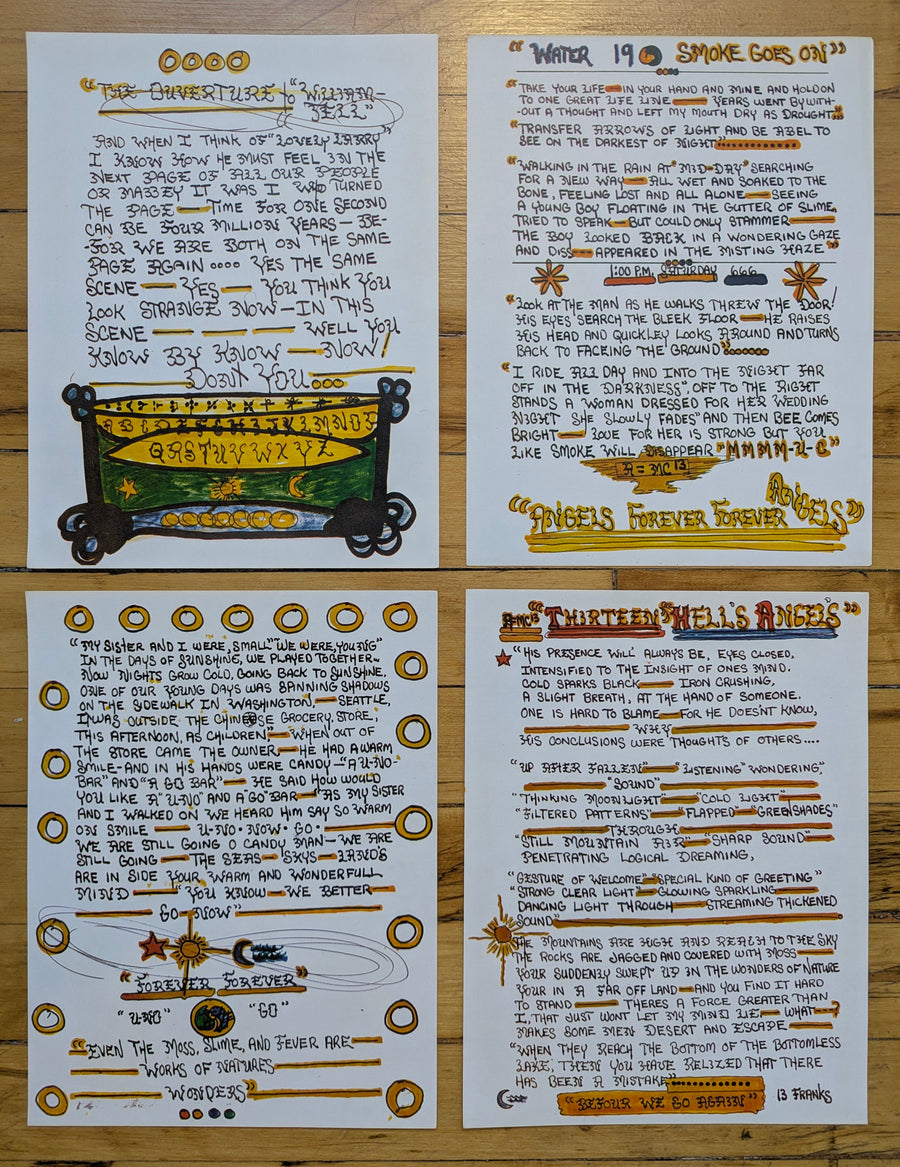 "THE OUVERTURE to "WILLIAM-
TELL"
AND WHEN I THINK OF "LOVELY LARRY"
I KNOW HOW HE MUST FEEL IN THE
NEXT PAGE OF ALL OUR PEOPLE
OR MABEY IT WAS I WHO TURNED
THE PAGE — TIME FOR ONE SECOND
CAN BE FOUR MILLION YEARS — BE-
-FOR WE ARE BOTH ON THE SAME
PAGE AGAIN .... YES THE SAME
SCENE — YES — YOU THINK YOU
LOOK STRANGE NOW — IN THIS
SCENE — — — WELL YOU
KNOW BY KNOW — NOW,
DONT YOU...
ABCDEFGHIJKLMNOP
QRSTUVWXYZ
"WATER 19 SMOKE GOES ON"
"TAKE YOUR LIFE — IN YOUR HAND AND MINE AND HOLD ON
TO ONE GREAT LIFE LINE — YEARS WENT BY WITH-
-OUT A THOUGHT AND LEFT MY MOUTH DRY AS DROUGHT
"TRANSFER ARROWS OF LIGHT AND BE ABEL TO
SEE ON THE DARKEST OF NIGHT"
"WALKING IN THE RAIN AT "MID-DAY" SEARCHING
FOR A NEW WAY — ALL WET AND SOAKED TO THE
BONE, FEELING LOST AND ALL ALONE — SEEING
A YOUNG BOY FLOATING IN THE GUTTER OF SLIME,
TRIED TO SPEAK — BUT COULD ONLY STAMMER —
THE BOY LOOKED BACK IN A WONDERING GAZE
AND DISS — APPEARED IN THE MISTING HAZE"
1:00 P.M. SATURDAY 666
"LOOK AT THE MAN AS HE WALKS THREW THE DOOR!
HIS EYES SEARCH THE BLEEK FLOOR — HE RAISES
HIS HEAD AND QUICKLEY LOOKS AROUND AND TURNS
BACK TO FACEING THE GROUND"
"I RIDE ALL DAY AND INTO THE NIGHT FAR
OFF IN THE "DARKNESS", OFF TO THE RIGHT
STANDS A WOMAN DRESSED FOR HER WEDDING
NIGHT SHE SLOWLY FADES" AND THEN BEE COMES
BRIGHT — LOVE FOR HER IS STRONG BUT YOU
LIKE SMOKE WILL DISAPPEAR "MMMM-U-C"
A=MC 13
"ANGELS FOREVER FOREVER ANGELS"
"MY SISTER AND I WERE, SMALL" WE WERE, YOUNG"
IN THE DAYS OF SUNSHINE, WE PLAYED TOGETHER~
NOW NIGHTS GROW COLD, GOING BACK TO SUNSHINE.
ONE OF OUR YOUNG DAYS WAS SPINNING SHADOWS
ON THE SIDEWALK IN WASHINGTON, — SEATTLE,
IT WAS OUTSIDE THE CHINESE GROCERY, STORE,
THIS AFTERNOON, AS CHILDREN, — WHEN OUT OF
THE STORE CAME THE OWNER — HE HAD A WARM
SMILE - AND IN HIS HANDS WERE CANDY — "A U-NO-
BAR" AND "A GO BAR" — HE SAID HOW WOULD
YOU LIKE A "U-NO" AND A "GO" BAR — "AS MY SISTER
AND I WALKED ON WE HEARD HIM SAY SO WARM
ON SMILE — U-NO-NOW-GO —
WE ARE STILL GOING O CANDY MAN — WE ARE
STILL GOING — THE SEAS - SKYS - LANDS
ARE IN SIDE YOUR WARM AND WONDERFULL
MIND — "YOU KNOW — WE BETTER —
— GO — NOW"
"FOREVER FOREVER"
"U-NO" "GO"
"EVEN THE MOSS, SLIME, AND FEVER ARE —
— WORKS OF NATURES —
— WONDERS"
A=MC13 "THIRTEEN" "HELL'S ANGELS"
"HIS PRESENCE WILL ALWAYS BE, EYES CLOSED,
INTENSIFIED TO THE INSIGHT OF ONES MIND.
COLD SPARKS BLACK — IRON CRUSHING,
A SLIGHT BREATH, AT THE HAND OF SOMEONE.
ONE IS HARD TO BLAME — FOR HE DOES'NT KNOW,
— WHY —
HIS CONCLUSIONS WERE THOUGHTS OF OTHERS....
"UP AFTER FALLEN" — "LISTENING" WONDERING,"
— "SOUND" —
"THINKING MOONLIGHT" — "COLD LIGHT" —
"FILTERED PATTERNS" — "FLAPPED" — "GREEN SHADES"
— THROUGH —
"STILL MOUNTAIN AIR — "SHARP SOUND"
PENETRATING LOGICAL DREAMING,
"GESTURE OF WELCOME" — "SPECIAL KIND OF GREETING"
"STRONG CLEAR LIGHT" — GLOWING SPARKLING —
DANCING LIGHT THROUGH — STREAMING THICKENED
SOUND" —
THE MOUNTAINS ARE HIGH AND REACH TO THE SKY
THE ROCKS ARE JAGGED AND COVERED WITH MOSS —
YOUR SUDDENLY SWEPT UP IN THE WONDERS OF NATURE
YOUR IN A FAR OFF LAND — AND YOU FIND IT HARD
TO STAND — THERES A FORCE GREATER THAN
I, THAT JUST WONT LET MY MIND LIE — WHAT —?
MAKES SOME MEN DESERT AND ESCAPE —
"WHEN THEY REACH THE BOTTOM OF THE BOTTOMLESS
LAKE, THEN YOU HAVE RELIZED THAT THERE
HAS BEEN A MISTAKE"
"BEFOUR WE GO AGAIN" 13 FRANKS